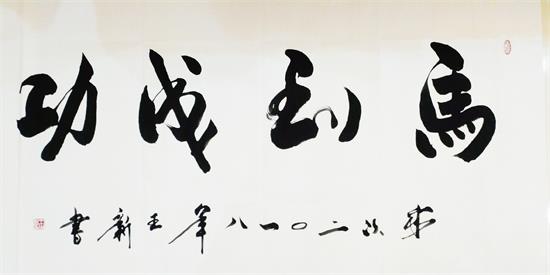 馬到成功
歲次二〇一八年王新書